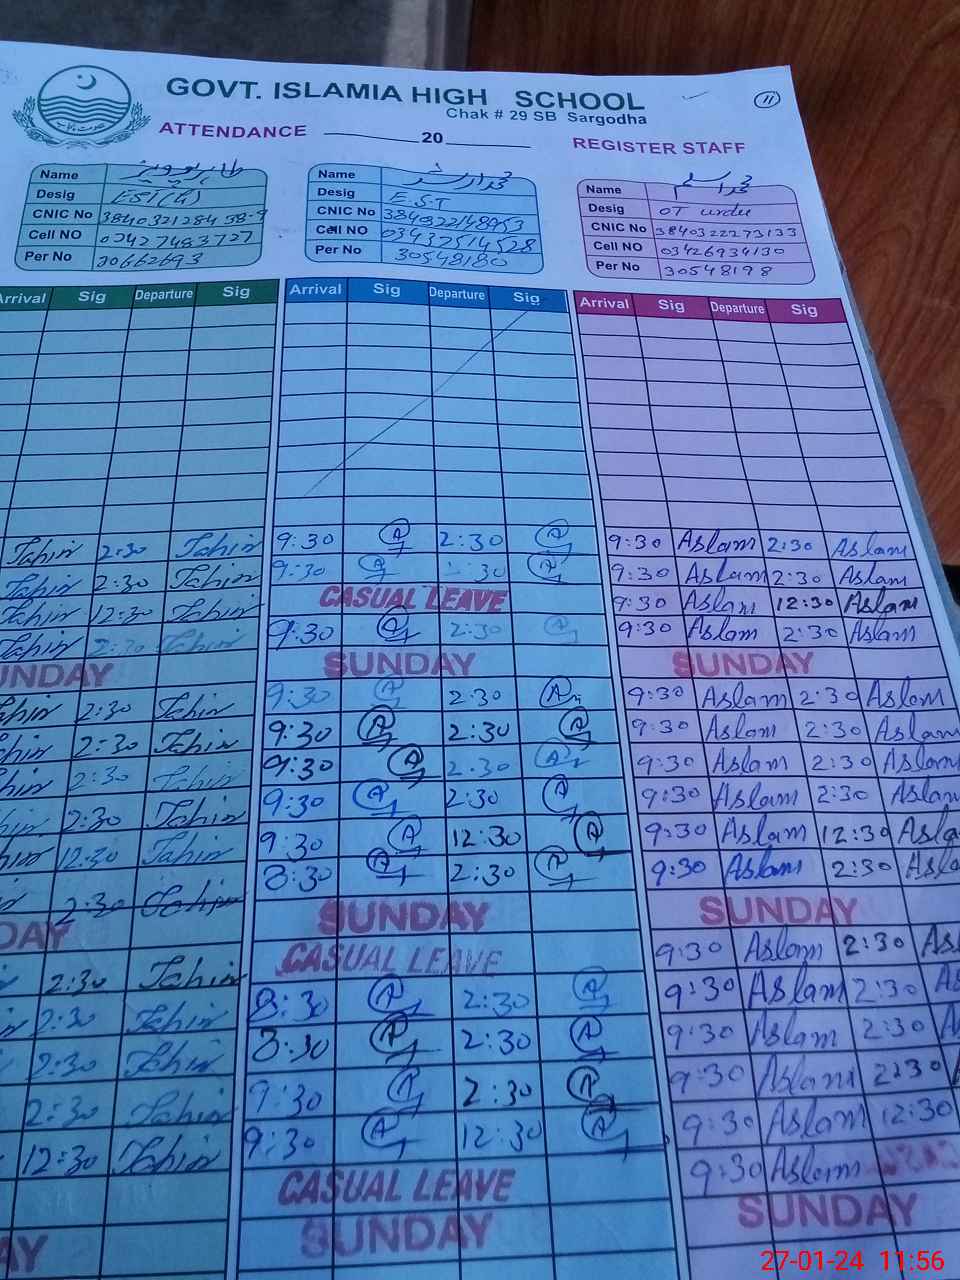 GOVT. ISLAMIA HIGH SCHOOL
11
Chak # 29 SB Sargodha
ATTENDANCE ________ 20 ________ REGISTER STAFF
Name
Desig EST
CNIC No
Cell NO 03427483727
Per No 20662693
Name محمد ارشد
Desig E.S.T
CNIC No 3840322148953
Cell NO 03437514528
Per No 30548180
Name محمد اسلم
Desig OT urdu
CNIC No 3840322273133
Cell NO 03426934130
Per No 30548198
Arrival Sig Departure Sig Arrival Sig Departure Sig Arrival Sig Departure Sig
Tahir 2:30 Tahir 9:30 2:30 9:30 Aslam 2:30 Aslam
Tahir 2:30 Tahir 9:30 :30 9:30 Aslam 2:30 Aslam
Tahir 12:30 Tahir CASUAL LEAVE 9:30 Aslam 12:30 Aslam
Tahir 2:30 Tahir 9:30 2:30 9:30 Aslam 2:30 Aslam
UNDAY SUNDAY SUNDAY
ahir 2:30 Tahir 9:30 2:30 9:30 Aslam 2:30 Aslam
hir 2:30 Tahir 9:30 2:30 9:30 Aslam 2:30 Aslam
hin 2:30 Tahir 9:30 2:30 9:30 Aslam 2:30 Aslam
hir 2:30 Tahir 9:30 2:30 9:30 Aslam 2:30 Aslam
hir 12:30 Tahir 9:30 12:30 9:30 Aslam 12:30 Asla
2:30 Tahir 8:30 2:30 9:30 Aslam 2:30 Asla
DAY SUNDAY SUNDAY
2:30 Tahir CASUAL LEAVE 9:30 Aslam 2:30 Asl
2:30 Tahir 8:30 2:30 9:30 Aslam 2:30 As
2:30 Tahir 8:30 2:30 9:30 Aslam 2:30 A
2:30 Tahir 9:30 2:30 9:30 Aslam 2:30
12:30 Tahir 9:30 12:30 9:30 Aslam 12:30
CASUAL LEAVE 9:30 Aslam
AY SUNDAY SUNDAY
27-01-24 11:56